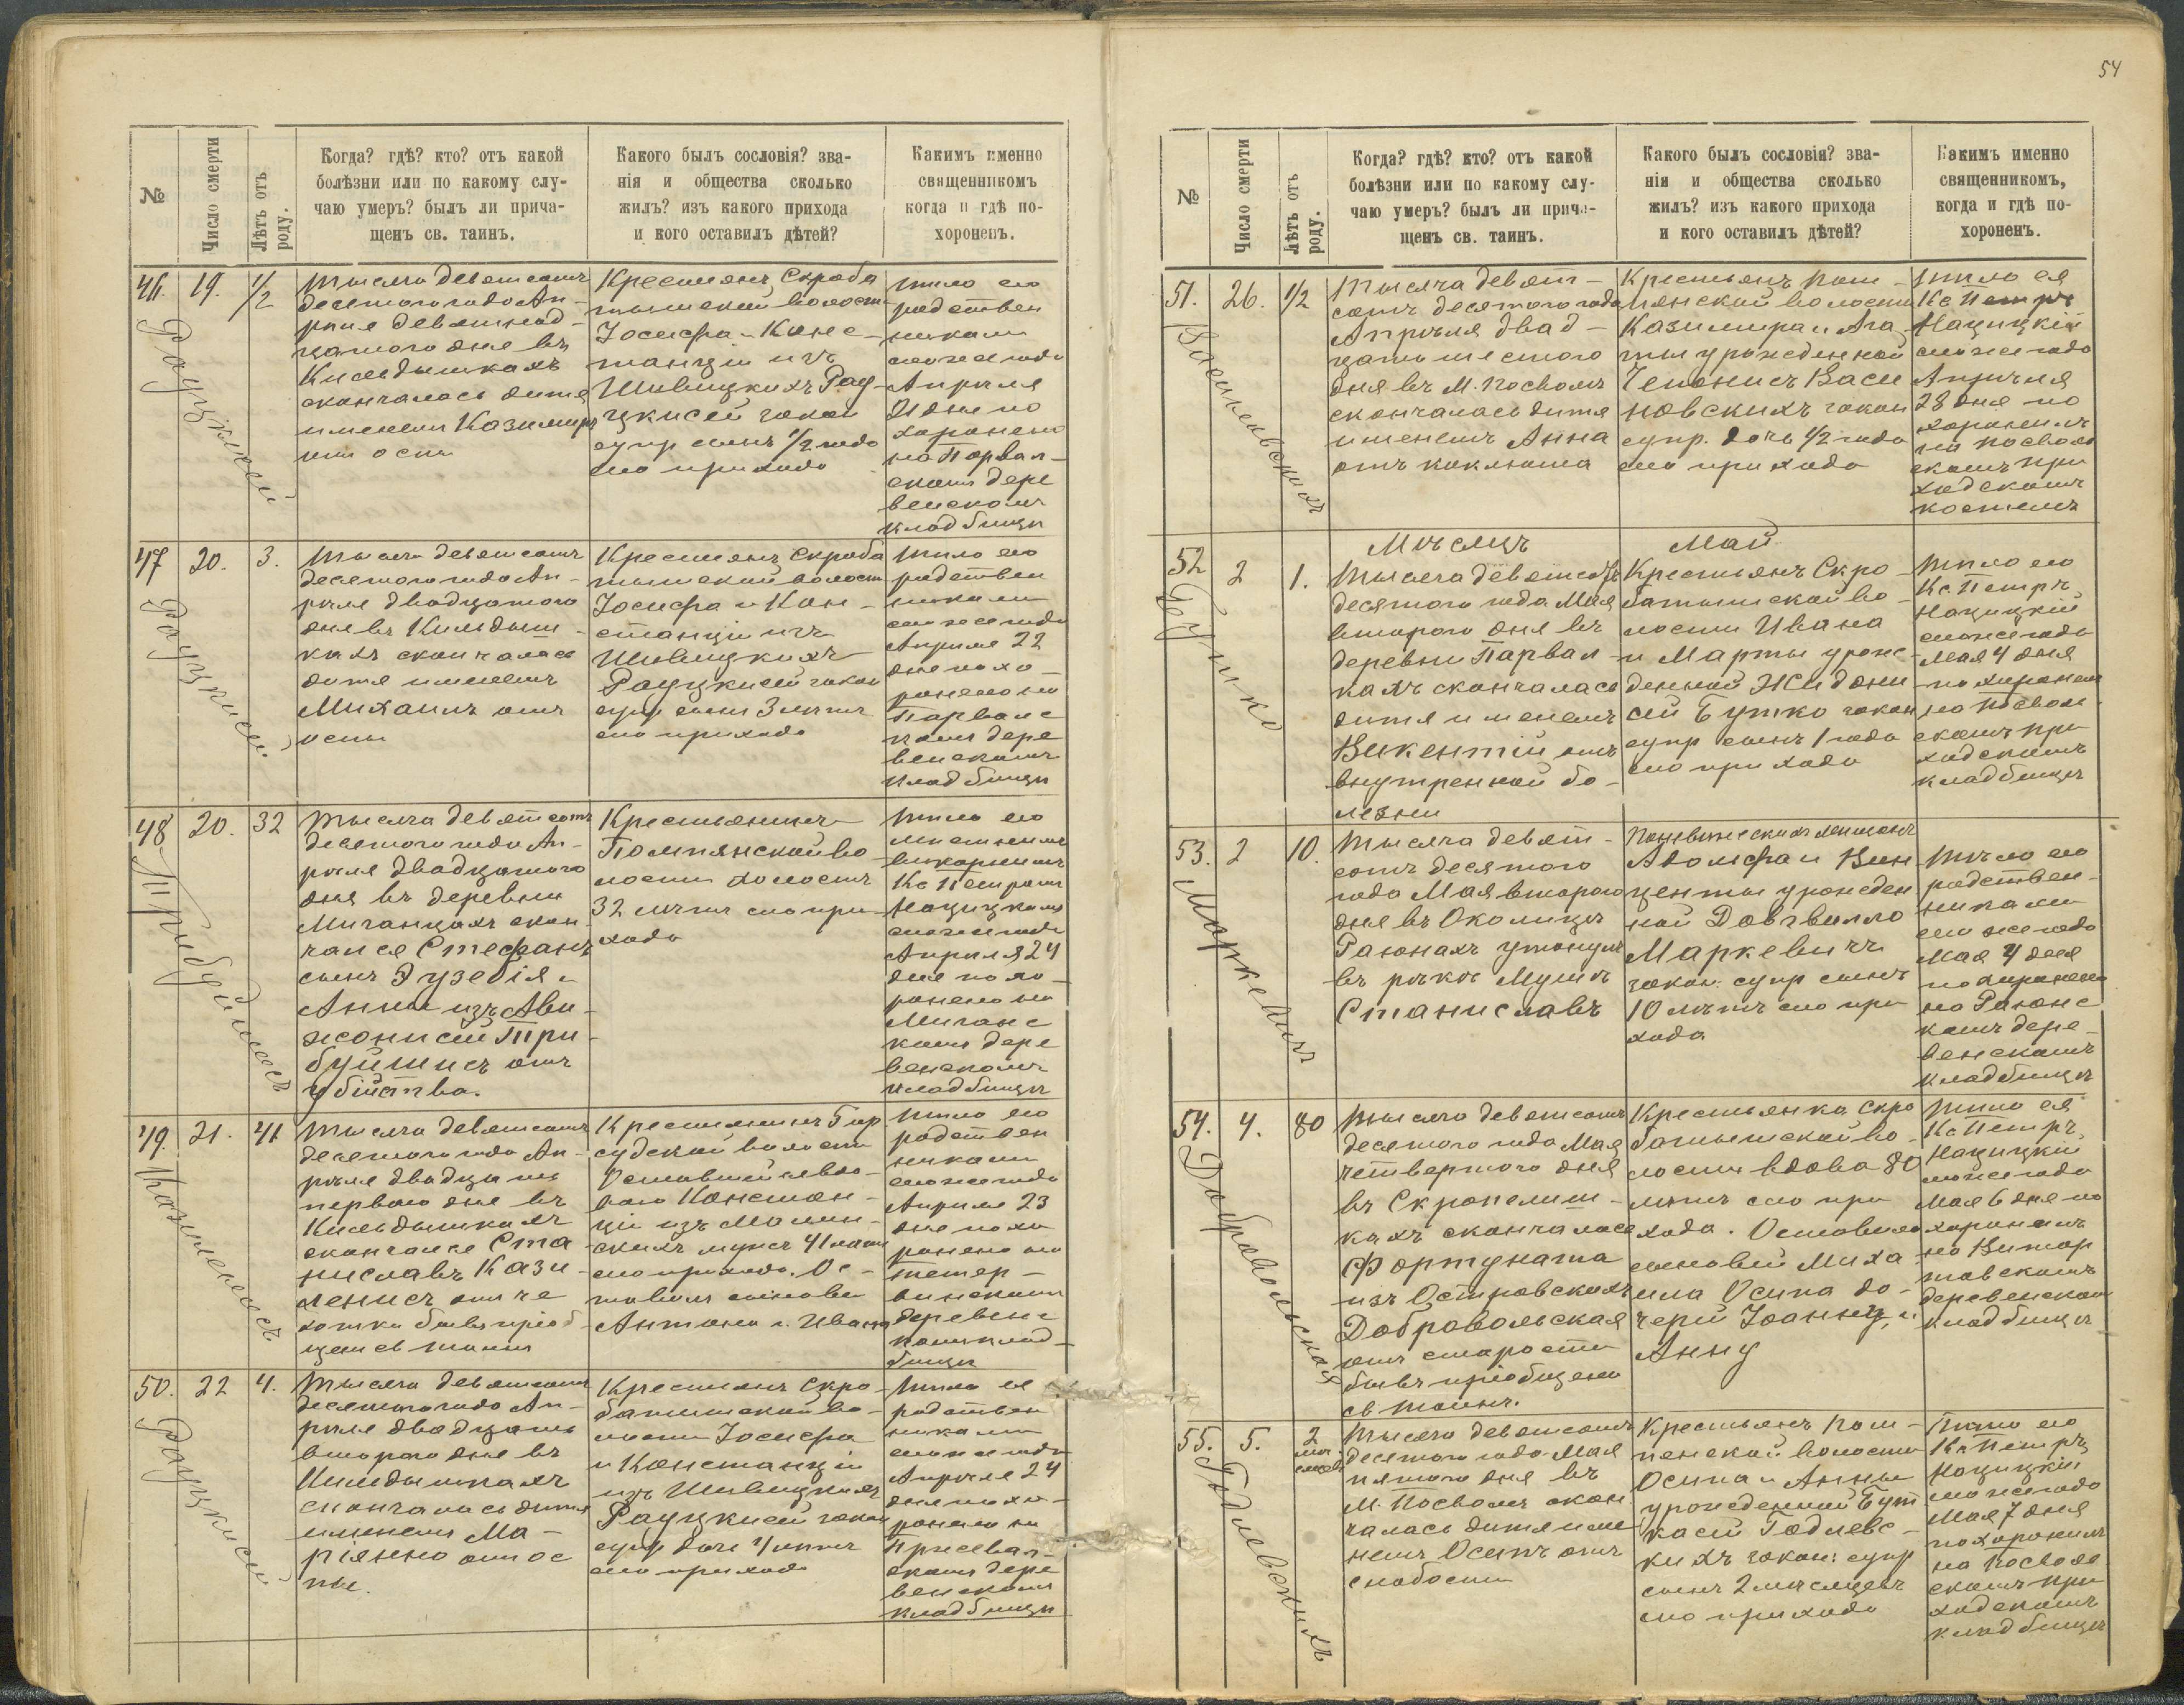 54
№
Число смерти
Лѣтъ отъ роду.
Когда? гдѣ? кто? отъ какой
болѣзни или по какому слу-
чаю умеръ? былъ ли прича-
щенъ св. таинъ.
Какого былъ сословія? зва-
нія и общества сколько
жилъ? изъ какого прихода
и кого оставилъ дѣтей?
Какимъ именно
священникомъ
когда и гдѣ по-
хороненъ.
46.
19.
1/2
Тысяча девятсотъ
десятого года Ап-
рѣля девятнад-
цатого дня въ
Кильдышкахъ
скончалась дитя
именемъ Казимиръ
Крестьянъ Скроба
тышской волости
Іосифа и Конс-
танціи изъ
Шивицкихъ Рау-
цкисей закон
супр сынъ 1/2 года
сего прихода
Тѣло его
родствен
никами
сего же года
Апрѣля
дня по
хоронено
скомъ дере
венскомъ
кладбищѣ
47
20.
3.
Тысяча девятсотъ
десятого года Ап-
рѣля двадцатого
дня въ Кильдыш-
кахъ скончалась
дитя именемъ
Михаилъ отъ
оспы
Крестьянъ Скроба
тышской волости
Іосифа и Кон-
станціи изъ
Шивицкихъ
Рауцкисей закон
супр сынъ 3 лѣтъ
сего прихода
Тѣло его
родствен
никами
сего же года
Апрѣля 22
дня похо-
ронено на
комъ дере
венскомъ
кладбищѣ
48
20.
32
Тысяча девятсотъ
десятого года Ап-
рѣля двадцатого
дня въ деревни
скон
чался Стефанъ
сынъ Эузебія и
Анны изъ Ави-
жонисей Три-
буйтисъ отъ
убійства.
Крестьянинъ
Помпянской во
лости холостъ
32 лѣтъ сего при-
хода
Тѣло его
мѣстнымъ
викарнымъ
Кс Петромъ
Нацицкимъ
сего же года
Апрѣля 24
дня похо-
ронено на
комъ дере
венскомъ
кладбищѣ
49.
21.
41
Тысяча девятсотъ
десятого года Ап-
рѣля двадцать
первого дня въ
Кильдышкахъ
скончался Ста
ниславъ Кази-
ленисъ отъ че
хотки бывъ пріоб-
щенъ св таинъ
судской волости
Оставшей вдо-
вою Констан-
ціи изъ
мужъ 41 лѣтъ
сего прихода. Ос-
тавилъ сыновей
Антона и Ивана
Тѣло его
родствен
никами
сего же года
Апрѣля 23
дня похо
ронено на
деревенс
комъ клад-
бищѣ
50.
22
4.
Тысяча девятсотъ
десятого года Ап-
рѣля двадцать
второго дня въ
Кильдышкахъ
скончалась дитя
именемъ Ма-
ріянна отъ ос
пы.
Крестьянъ Скро-
батышской во-
лости Іосифа
и Констанціи
изъ Шивицкихъ
Рауцкисей закон
супр дочь 4 лѣтъ
сего прихода
Тѣло ея
родствен
никами
сего же года
Апрѣля 24
дня похо-
ронено на
скомъ дере
венскомъ
кладбищѣ
№
Число смерти
Лѣтъ отъ роду.
Когда? гдѣ? кто? отъ какой
болѣзни или по какому слу-
чаю умеръ? былъ ли прича-
щенъ св. таинъ.
Какого былъ сословія? зва-
нія и общества сколько
жилъ? изъ какого прихода
и кого оставилъ дѣтей?
Какимъ именно
священникомъ,
когда и гдѣ по-
хороненъ.
51.
26.
1/2
Тысяча девят-
сотъ десятого года
Апрѣля двад-
цать шестого
дня въ М. Посволѣ
скончалась дитя
именемъ Анна
отъ коклюша
Крестьянъ Пом-
пянской волости
Казимира и Ага-
ты урожденной
Васи
новскихъ закон
супр. дочь 1/2 года
сего прихода
Тѣло ея
Кс Петръ
Нацицкій
сего же года
Апрѣля
28 дня по
хоронилъ
на Посволь
скомъ при
ходскомъ
Мѣсяцъ Май
52
2
1.
Бутко
Тысяча девятсотъ
десятого года Мая
второго дня въ
деревни Парвал-
кахъ скончалась
дитя именемъ
Викентій отъ
внутренной бо-
лезни
Крестьянъ Скро-
батышской во-
лости Ивана
и Марты урож-
денной Жидони
сей Бутко закон
супр сынъ 1 года
сего прихода
Тѣло его
Кс. Петръ
Нацицкій
сего же года
Мая 4 дня
похоронилъ
на Посволь
скомъ при
ходскомъ
кладбищѣ
53.
2
10.
Маркевичъ
Тысяча девят-
сотъ десятого
года Мая второго
дня въ Околицѣ
Раюнахъ утонулъ
въ рѣкѣ Мушѣ
Станиславъ
Поневѣжскихъ мѣщанъ
Адольфа и Вин
центы урожден
ной Довгвилло
Маркевичъ
закон. супр сынъ
10 лѣтъ сего при
хода
Тѣло его
родствен-
никами
сего же года
Мая 4 дня
похоронено
на Раюнс
комъ дере-
венскомъ
кладбищѣ
54.
4.
80
Добровольская
Тысяча девятсотъ
десятого года Мая
четвертого дня
въ Скрепелиш-
кахъ скончалась
Фортуната
изъ Островскихъ
Добровольская
отъ старости
бывъ пріобщена
св таинъ.
Крестьянка Скро
батышской во-
лости вдова 80
лѣтъ сего при
хода. Оставила
сыновей Миха
ила Осипа до-
черей Іоанну и
Анну
Тѣло ея
Кс Петръ
Нацицкій
сего же года
Мая 6 дня по
хоронилъ
деревенском
кладбищѣ
55.
5.
2
мѣ-
сяцевъ
Годлевскихъ
Тысяча девятсотъ
десятого года Мая
пятого дня въ
М. Посволѣ скон
чалась дитя име
немъ Осипъ отъ
слабости
Крестьянъ Пом-
пянской волости
Осипа и Анны
урожденной Бут
касй Годлевс-
кихъ закон: супр
сынъ 2 мѣсяцевъ
сего прихода
Тѣло его
Кс Петръ
Нацицкій
сего же года
Мая 7 дня
похоронилъ
на Посволь
скомъ при
ходскомъ
кладбищѣ